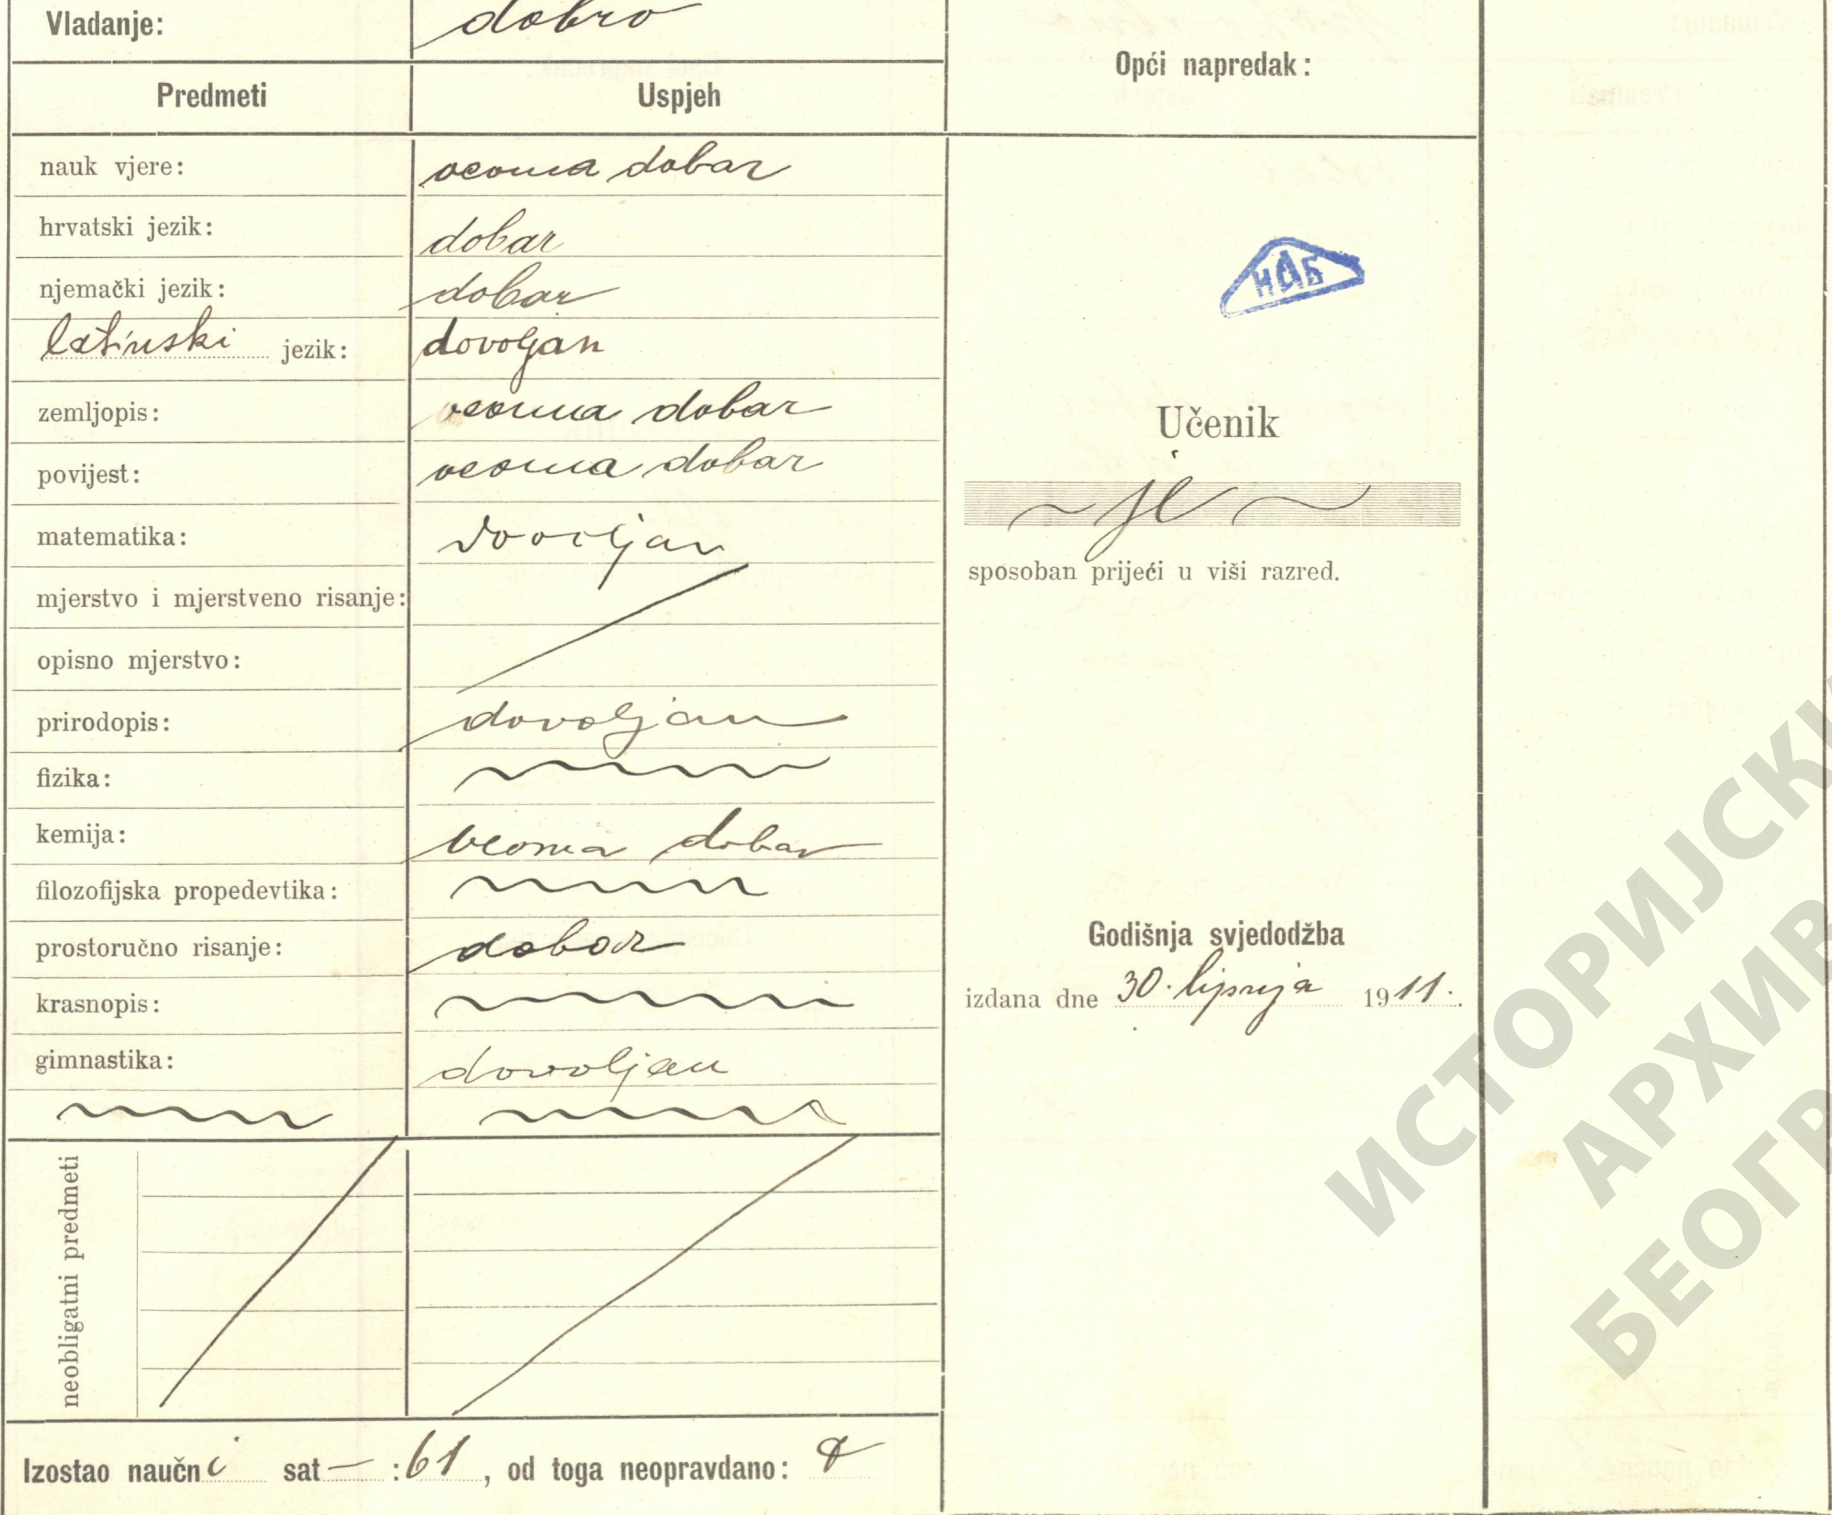 Vladanje: dobro
Predmeti Uspjeh
nauk vjere: veoma dobar
hrvatski jezik: dobar
njemački jezik: dobar
latinski jezik: dovoljan
zemljopis: veoma dobar
povijest: veoma dobar
matematika: dovoljan
mjerstvo i mjerstveno risanje:
opisno mjerstvo:
prirodopis: dovoljan
fizika:
kemija: veoma dobar
filozofijska propedevtika:
prostoručno risanje: dobar
krasnopis:
gimnastika: dovoljan
neobligatni predmeti
Izostao naučni sat — : 61, od toga neopravdano:
Opći napredak:
НАБ
Učenik
~ je ~
sposoban prijeći u viši razred.
Godišnja svjedodžba
izdana dne 30. lipnja 1911.
ИСТОРИЈСКИ
АРХИВ
БЕОГР